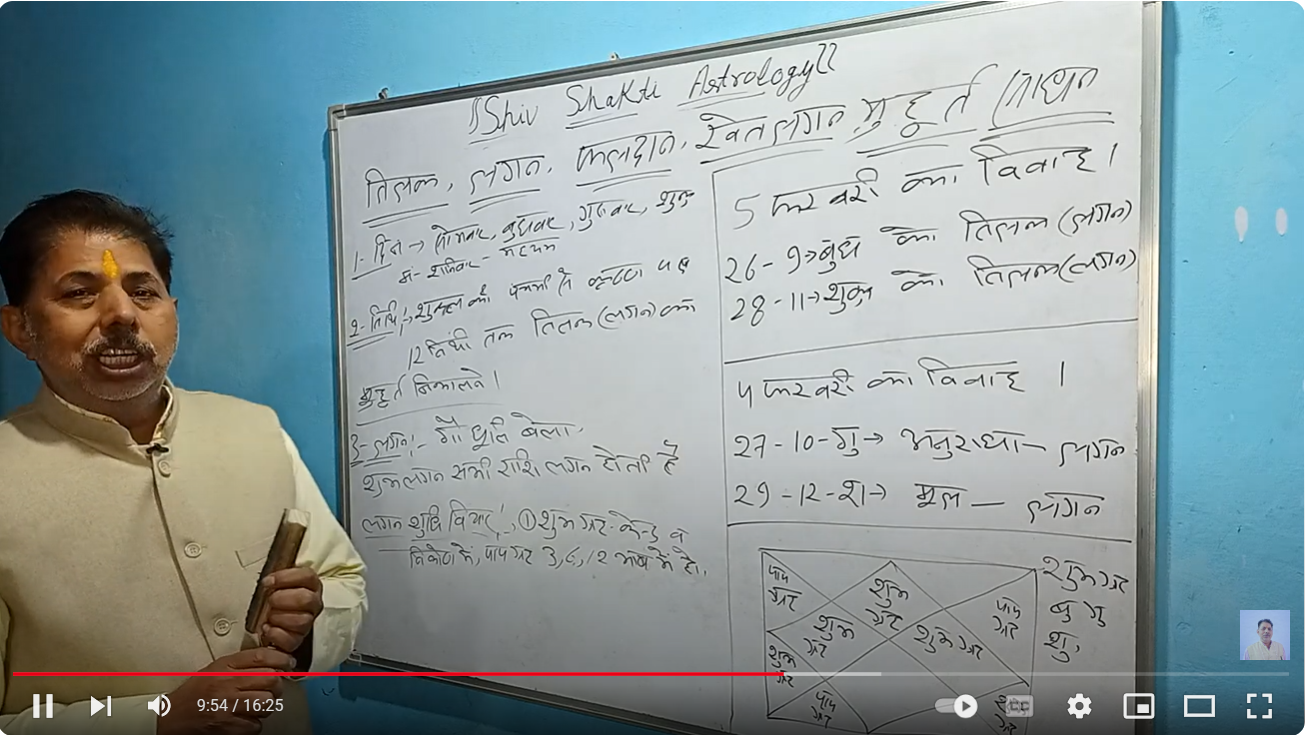 ॥Shiv Shakti Astrology॥
तिलक, लगन, फलदान, खेतलगन मुहूर्त साधन
1- दिन → सोमवार, बुधवार, गुरुवार, शुक्र
मं- शनिवार - मध्यम
2- तिथि!→ शुक्ल की पंचमी से कृष्ण पक्ष
12 तिथी तक तिलक (लगन) का
मुहूर्त निकालते।
3- लगन!- गौ धूलि बेला,
शुभ लगन सभी राशि लगन होती है
लगन शुद्धि विचार!, ① शुभ ग्रह केन्द्र व
त्रिकोण मे, पाप ग्रह 3,6,12 भाव में हो,
5 फरवरी का विवाह।
26-9→बुध का तिलक (लगन)
28-11→शुक्र का तिलक (लगन)
4 फरवरी का विवाह ।
27-10-गु→ अनुराधा - लगन
29-12-श→ मूल - लगन
पाप ग्रह
शुभ ग्रह
पाप ग्रह
शुभ ग्रह
शुभ ग्रह
शुभ ग्रह
पाप ग्रह
शुभ ग्रह
बु गु
शु,
9:54 / 16:25
CC